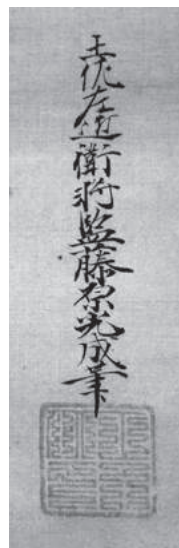 土佐左近衛将監藤原光成筆